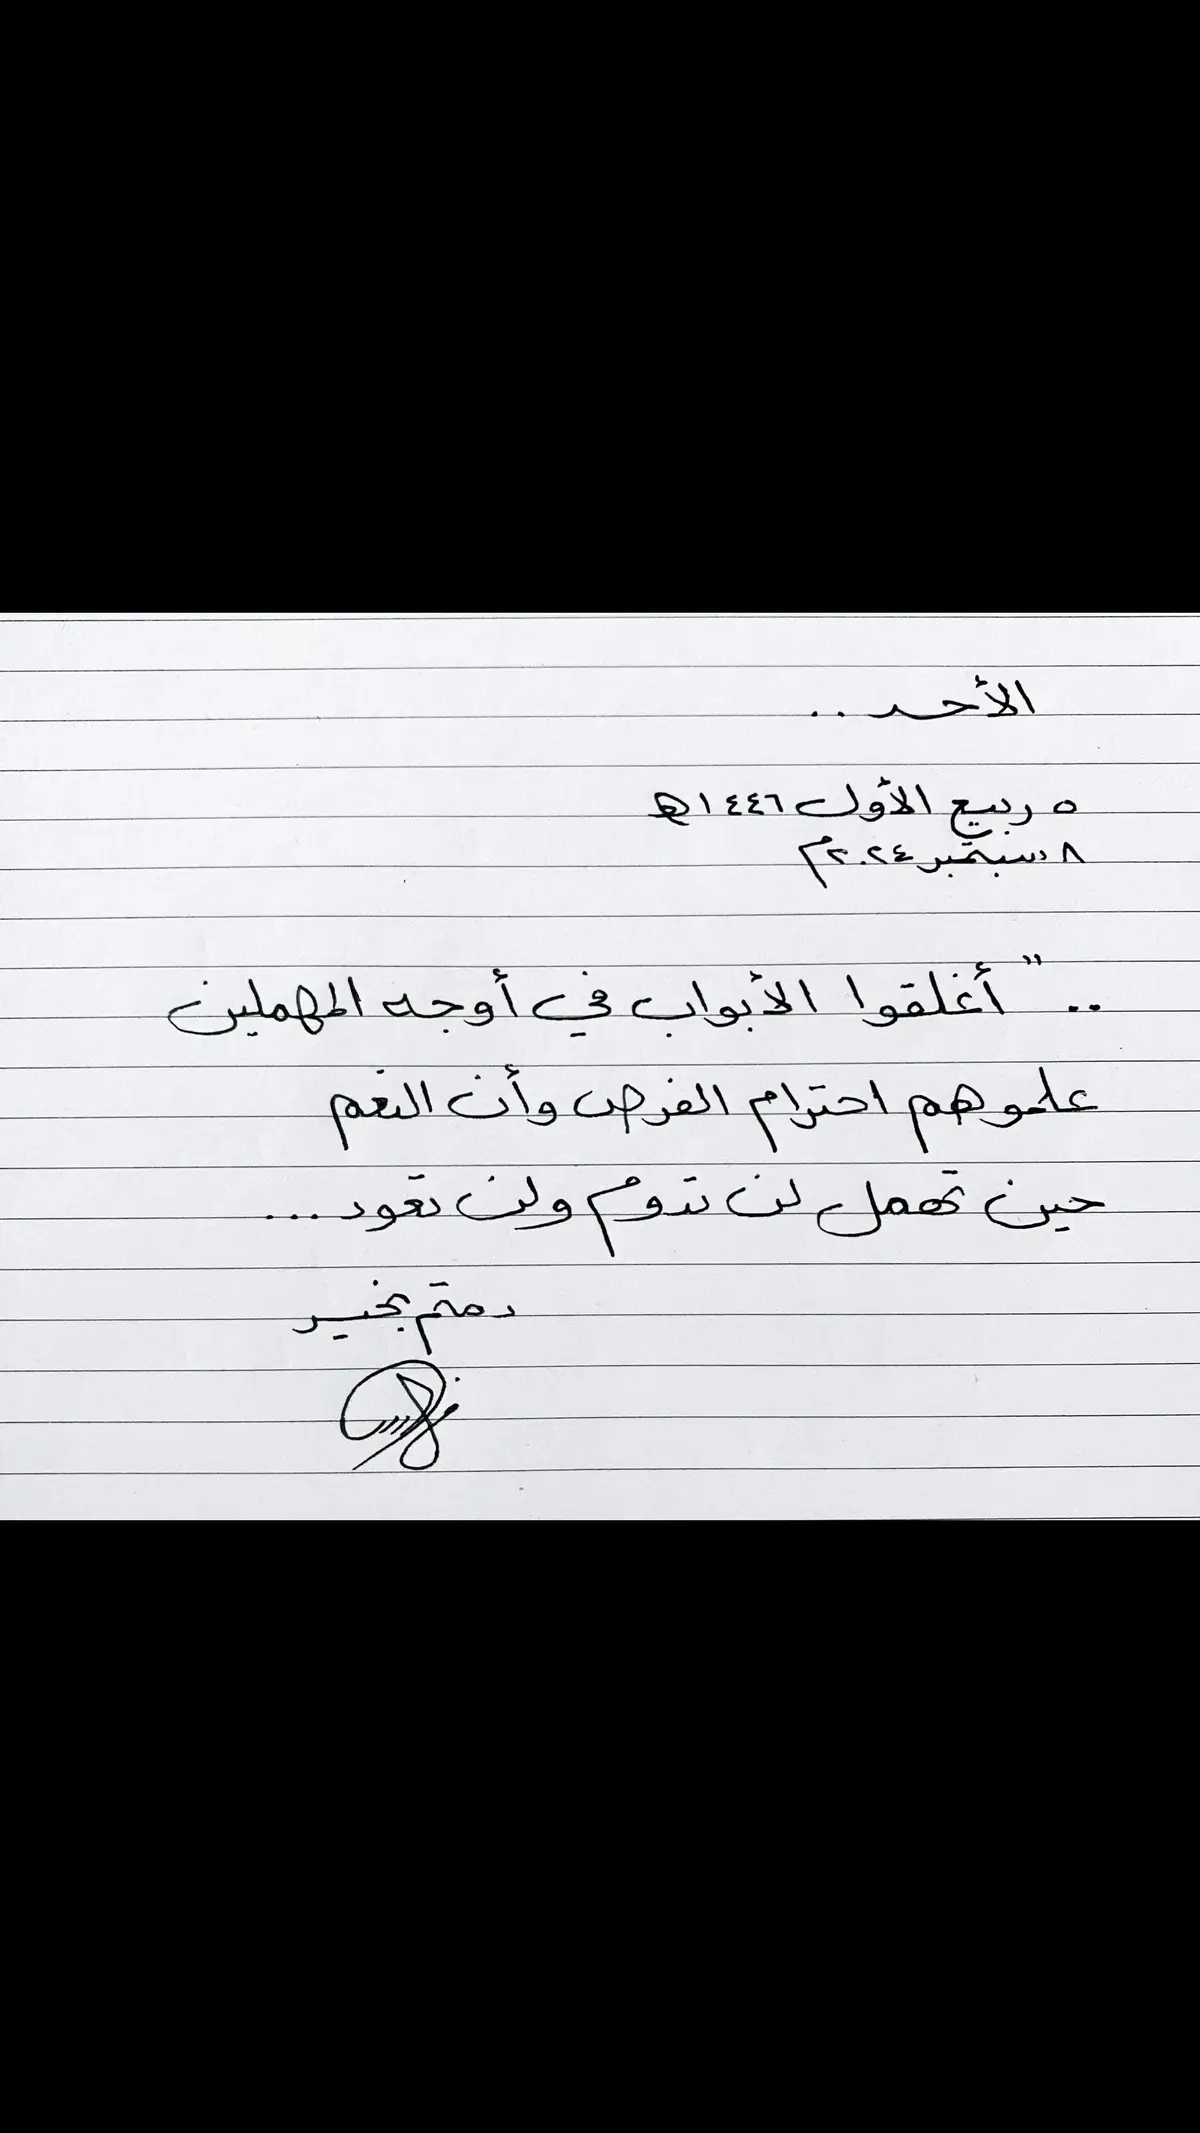 الأحد ..
٥ ربيع الأول ١٤٤٦هـ
٨ سبتمبر ٢٠٢٤م
.. " أغلقوا الأبواب في أوجه المهملين
علموهم احترام الفرص وأن النعم
حين تهمل لن تدوم ولن تعود ...
دمتم بخير